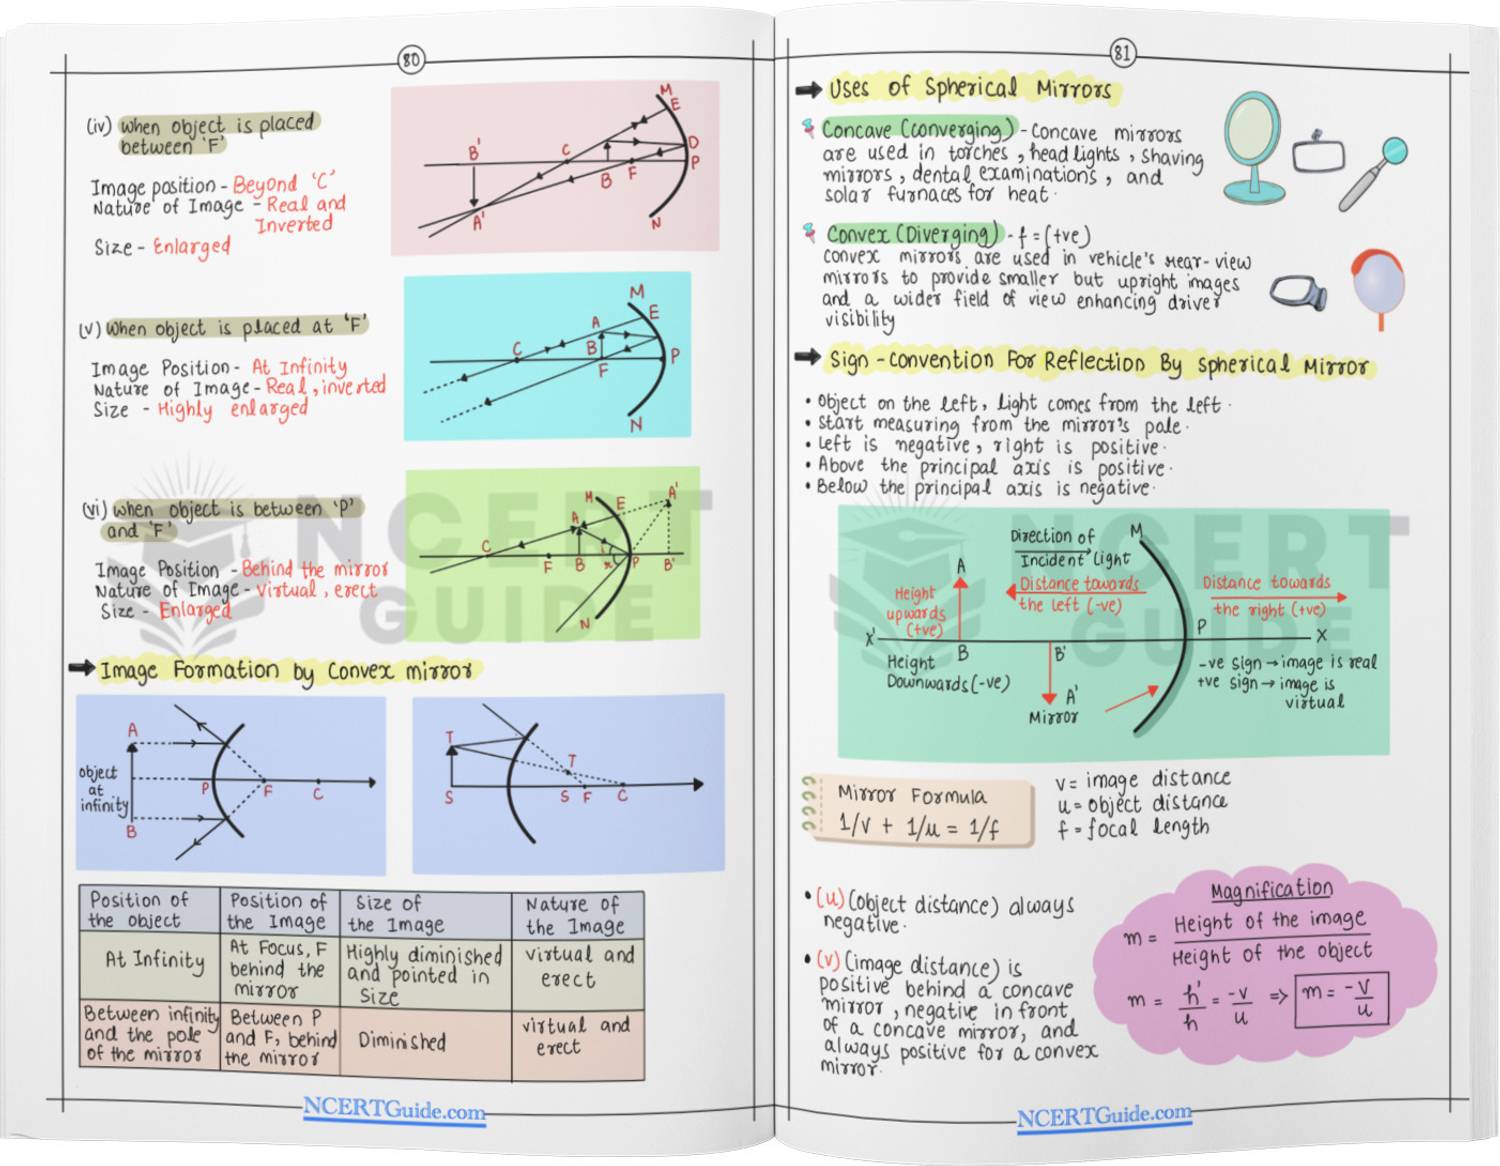 80
(iv) When object is placed
between 'F'
Image position - Beyond 'C'
Nature of Image - Real and
Inverted
Size - Enlarged
M
E
B'
C
D
P
B
F
A'
N
(v) When object is placed at 'F'
Image Position - At Infinity
Nature of Image - Real, inverted
Size - Highly enlarged
M
E
A
C
B
P
F
N
(vi) When object is between 'P'
and 'F'
Image Position - Behind the mirror
Nature of Image - virtual, erect
Size - Enlarged
M
E
A'
A
C
i
F
B
r
P
B'
N
NCERT
GUIDE
Image Formation by Convex mirror
A
object
at
infinity
P
F
C
B
T
T
S
S
F
C
Position of
the object
Position of
the Image
Size of
the Image
Nature of
the Image
At Infinity
At Focus, F
behind the
mirror
Highly diminished
and pointed in
size
virtual and
erect
Between infinity
and the pole
of the mirror
Between P
and F, behind
the mirror
Diminished
virtual and
erect
NCERTGuide.com
81
Uses of Spherical Mirrors
Concave (Converging) - Concave mirrors
are used in torches, head lights, shaving
mirrors, dental examinations, and
solar furnaces for heat.
Convex (Diverging) - f = (+ve)
Convex mirrors are used in vehicle's rear-view
mirrors to provide smaller but upright images
and a wider field of view enhancing driver
visibility
Sign-Convention For Reflection By Spherical Mirror
• Object on the left, light comes from the left.
• Start measuring from the mirror's pole.
• Left is negative, right is positive.
• Above the principal axis is positive.
• Below the principal axis is negative.
NCERT
GUIDE
Direction of
Incident Light
M
A
Distance towards
the left (-ve)
Distance towards
the right (+ve)
Height
upwards
(+ve)
P
X'
X
B
B'
Height
Downwards (-ve)
-ve sign → image is real
+ve sign → image is
virtual
A'
Mirror
Mirror Formula
1/v + 1/u = 1/f
v = image distance
u = object distance
f = focal length
• (u) (object distance) always
negative.
• (v) (image distance) is
positive behind a concave
mirror, negative in front
of a concave mirror, and
always positive for a convex
mirror.
Magnification
m = Height of the image
Height of the object
m = h'/h = -v/u ⇒ m = -v/u
NCERTGuide.com